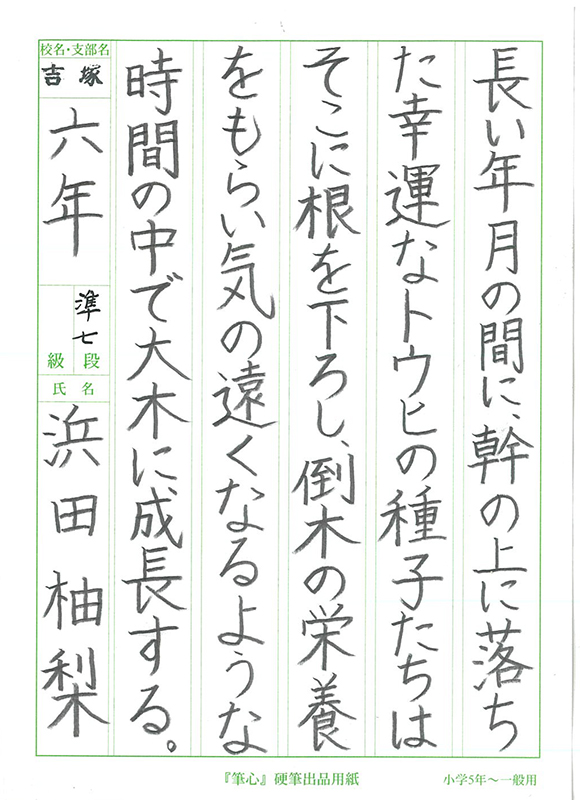 長い年月の間に、幹の上に落ち
た幸運なトウヒの種子たちは
そこに根を下ろし、倒木の栄養
をもらい気の遠くなるような
時間の中で大木に、成長する。
校名・支部名
吉塚
六年
準七
級段
氏名
浜田柚梨
『筆心』硬筆出品用紙
小学5年〜一般用